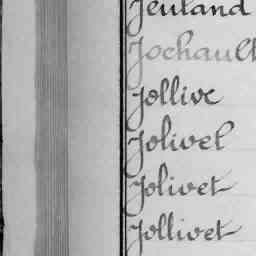 Jeuland
Jochault
Jollive
Jolivel
Jolivet
Jollivet